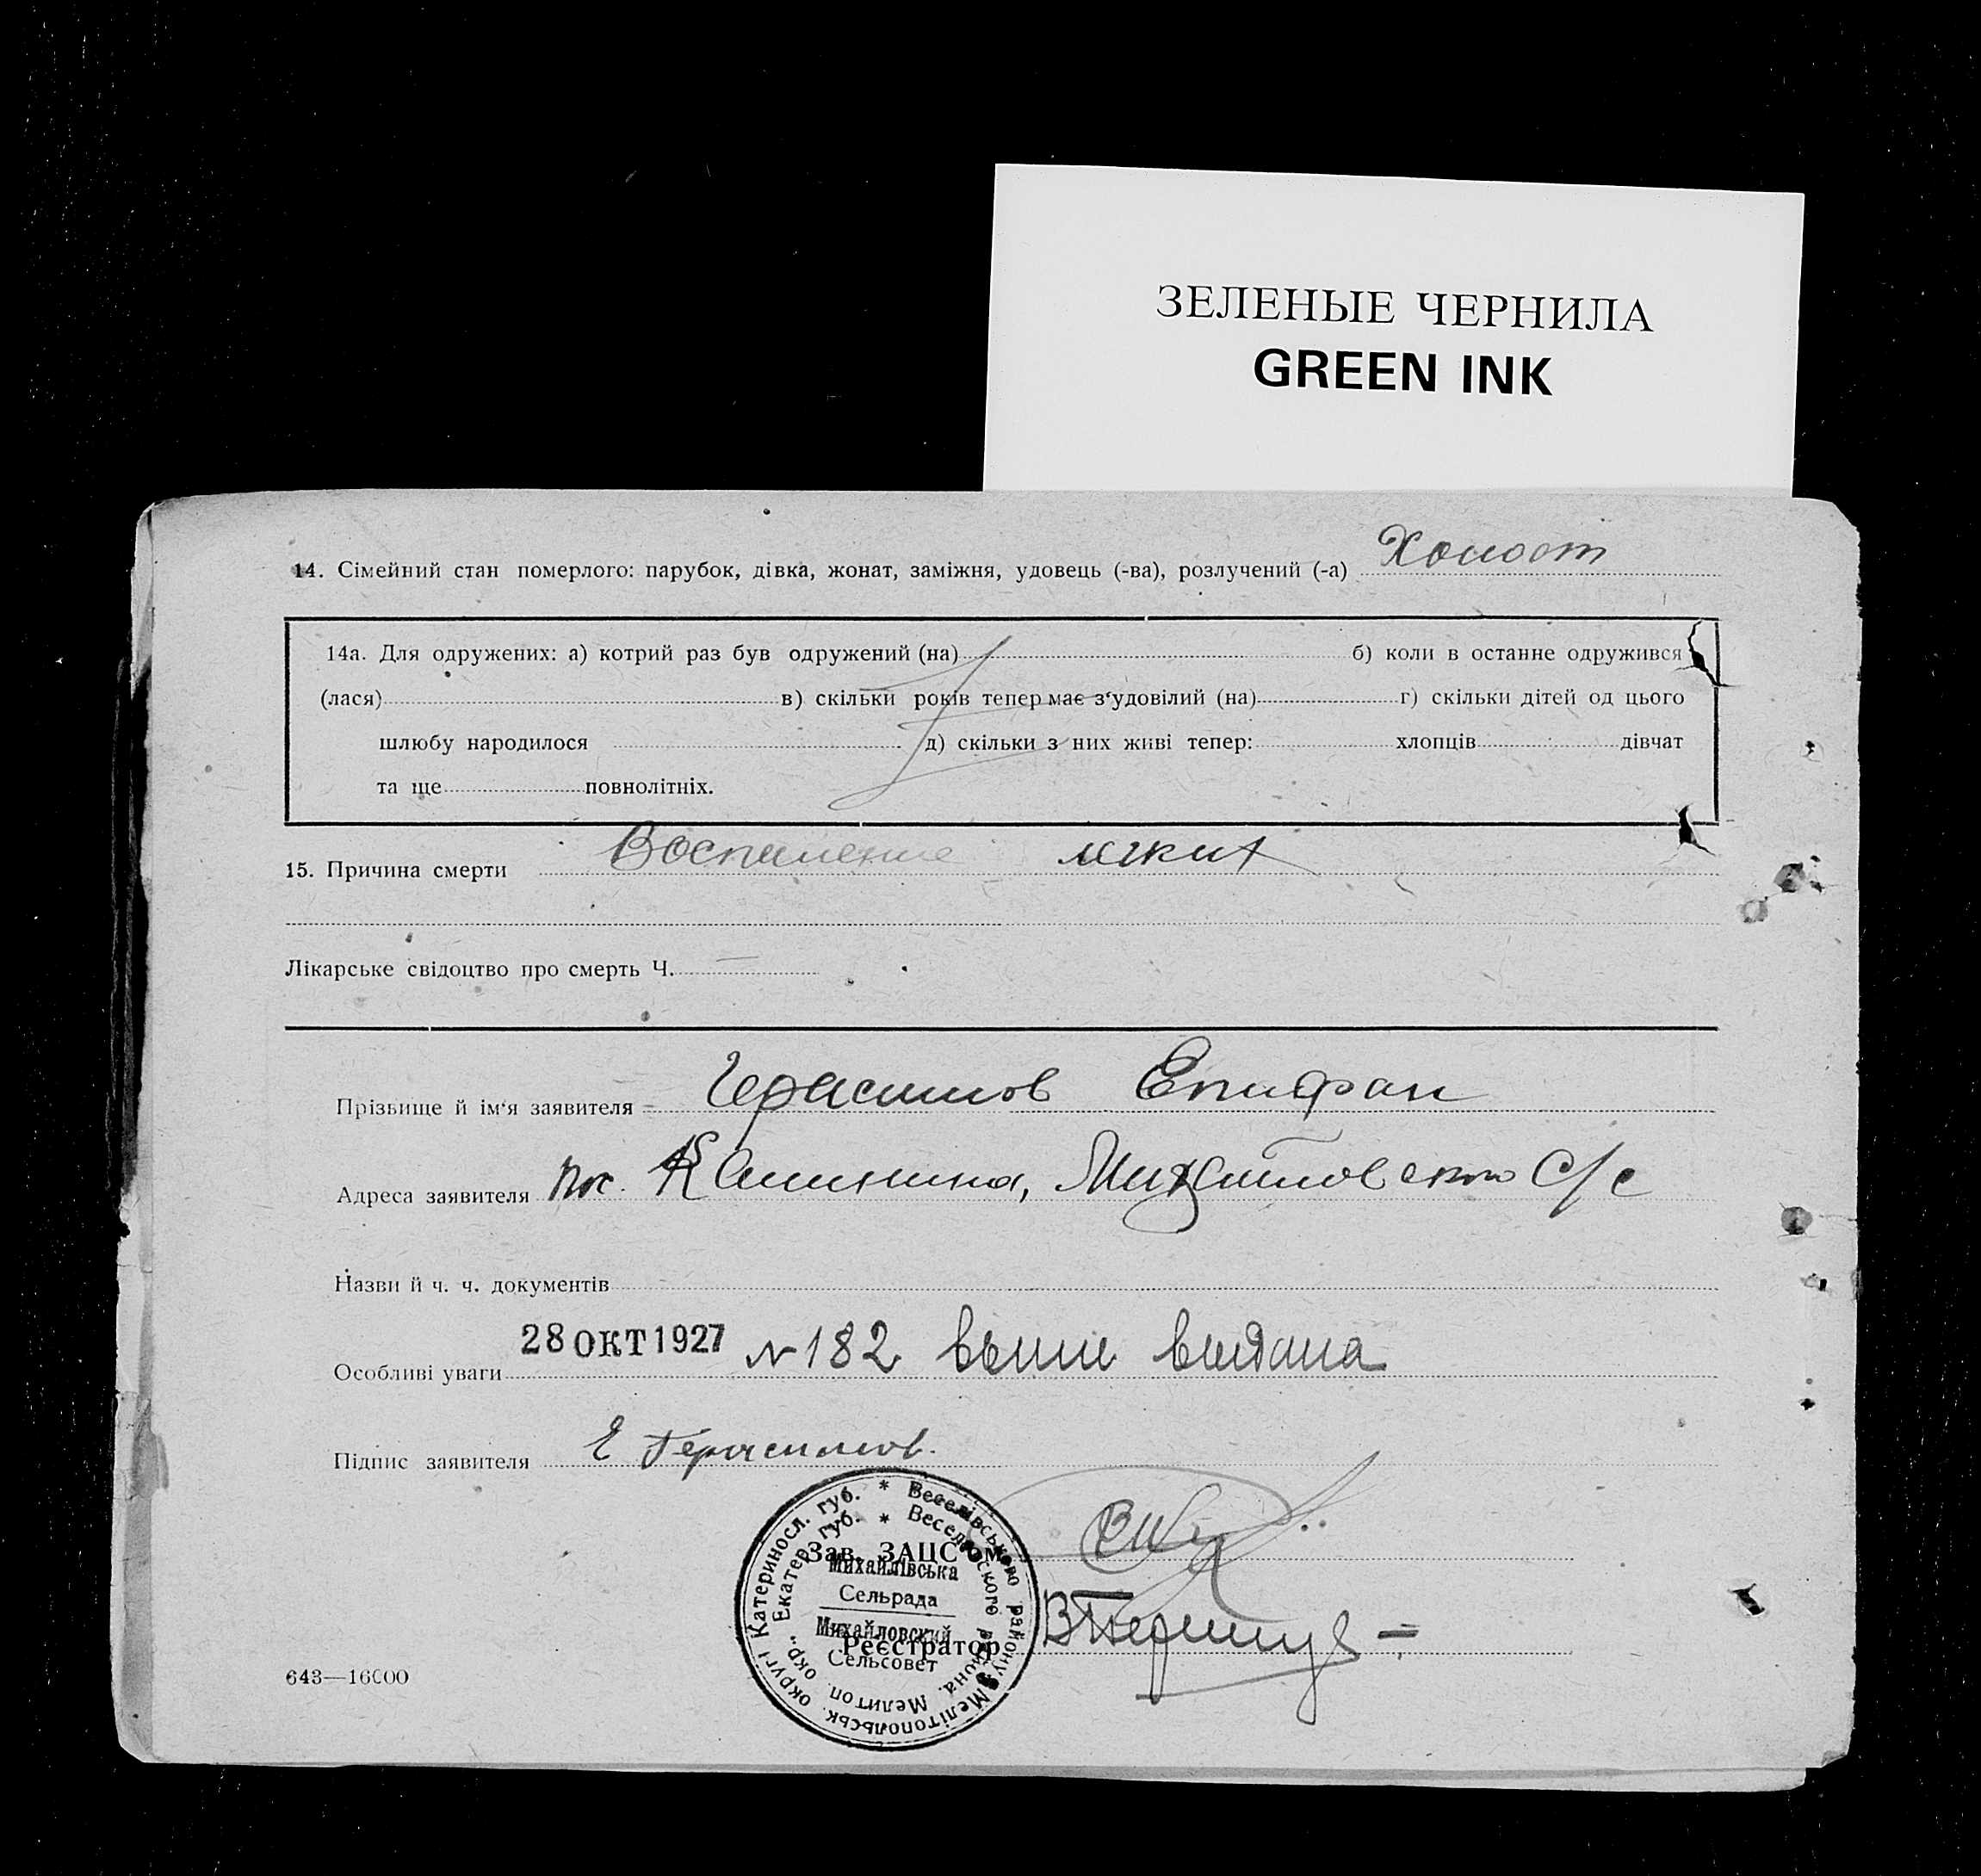 ЗЕЛЕНЫЕ ЧЕРНИЛА
GREEN INK
14. Сімейний стан померлого: парубок, дівка, жонат, заміжня, удовець (-ва), розлучений (-а) Холост
14а. Для одружених: а) котрий раз був одружений (на) б) коли в останне одружився
(лася) в) скільки років тепер має з‘удовілий (на) г) скільки дітей од цього
шлюбу народилося д) скільки з них живі тепер: хлопців дівчат
та ще повнолітніх.
15. Причина смерти Воспаление легких
Лікарське свідоцтво про смерть Ч. —
Прізвище й ім‘я заявителя Герасимов Епифан
Адреса заявителя пос. Калинина, Михайловского С/с
Назви й ч. ч. документів
Особливі уваги 28 ОКТ 1927 № 182 выпись выдана
Підпис заявителя Е Герасимов.
Зав. ЗАЦС'ом
Реєстратор
* Веселівського району Мелітопольськ. округі Катериносл. губ.
* Веселовского района, Мелитоп. окр. Екатер. губ.
Михайлівська
Сельрада
Михайловский
Сельсовет
643—16000